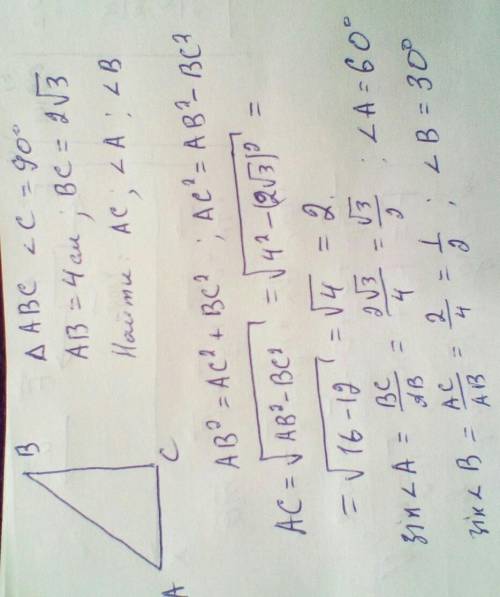 B
A
C
Δ ABC ∠C = 90°
AB = 4 см ; BC = 2√3
Найти: AC ; ∠A ; ∠B
AB² = AC² + BC² ; AC² = AB² - BC²
AC = √AB² - BC² = √4² - (2√3)² =
= √16 - 12 = √4 = 2.
sin∠A = BC/AB = 2√3/4 = √3/2 ; ∠A = 60°
sin∠B = AC/AB = 2/4 = 1/2 ; ∠B = 30°